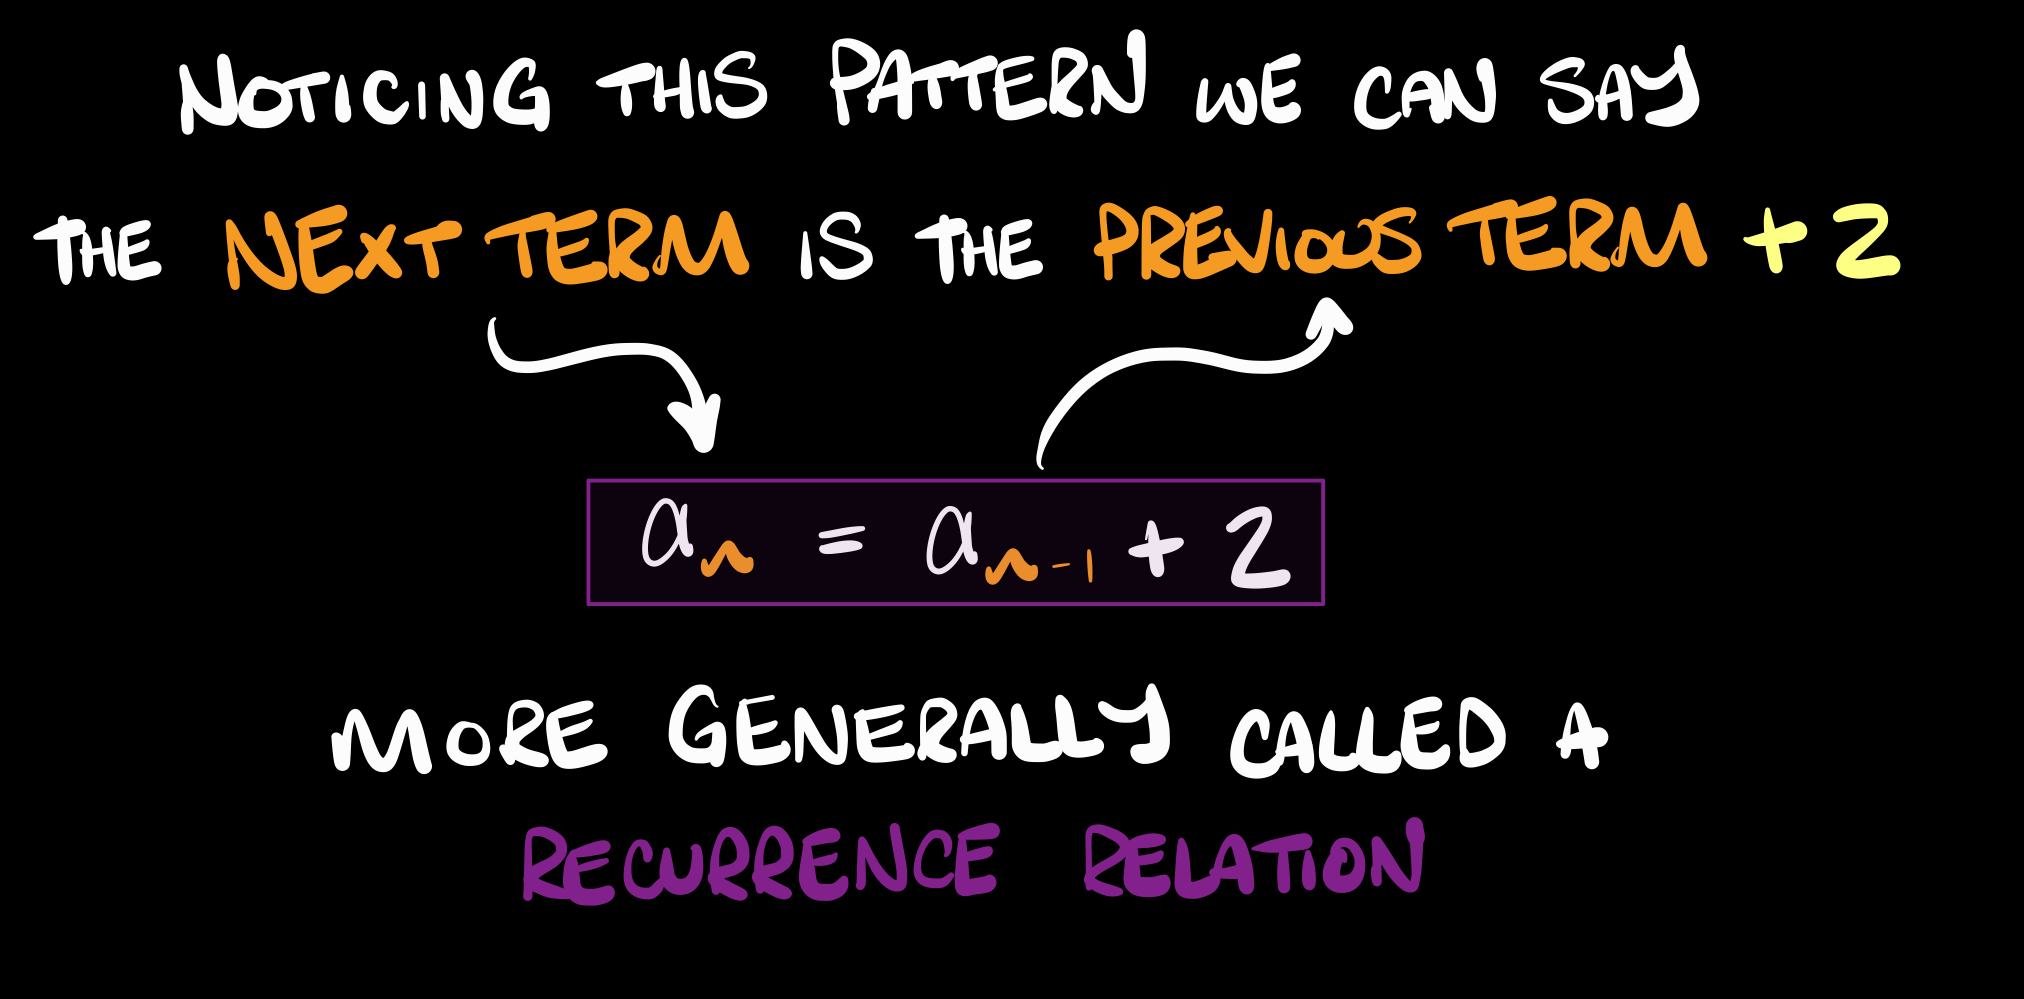 NOTICING THIS PATTERN WE CAN SAY
THE NEXT TERM IS THE PREVIOUS TERM + 2
aₙ = aₙ₋₁ + 2
MORE GENERALLY CALLED A
RECURRENCE RELATION